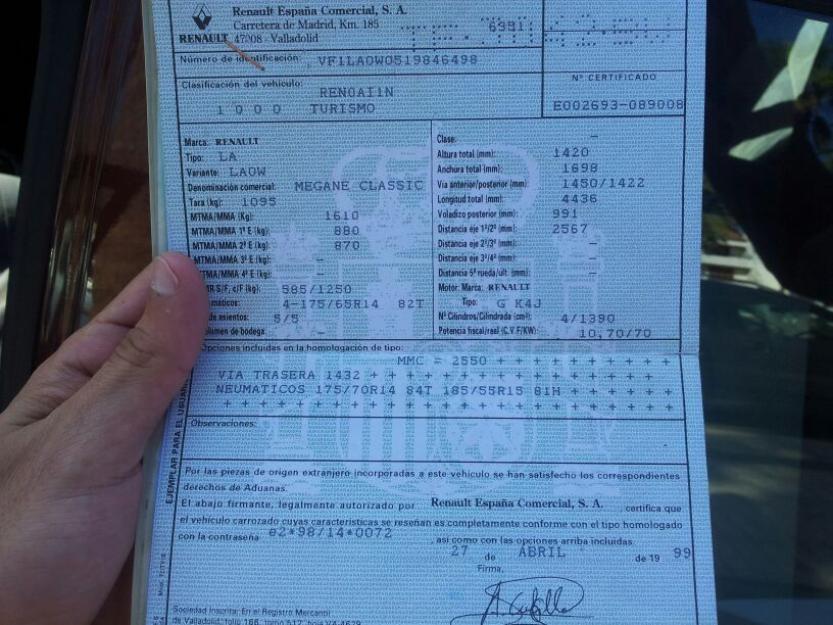 Renault España Comercial, S. A.
Carretera de Madrid, Km. 185
RENAULT 47008 - Valladolid
6991
Número de identificación: VF1LA0W0519846498
Nº CERTIFICADO
Clasificación del vehículo:
REN0AI1N
1 0 0 0 TURISMO
E002693-089008
Marca: RENAULT
Tipo: LA
Variante: LAOW
Denominación comercial: MEGANE CLASSIC
Tara (kg): 1095
MTMA/MMA (Kg): 1610
MTMA/MMA 1º E (kg): 880
MTMA/MMA 2º E (kg): 870
MTMA/MMA 3º E (kg): —
MTMA/MMA 4º E (kg): —
S/F, c/F (kg): 585/1250
4-175/65R14 82T
de asientos: 5/5
de bodega: —
Clase: —
Altura total (mm): 1420
Anchura total (mm): 1698
Via anterior/posterior (mm): 1450/1422
Longitud total (mm): 4436
Voladizo posterior (mm): 991
Distancia eje 1º/2º (mm): 2567
Distancia eje 2º/3º (mm): —
Distancia eje 3º/4º (mm): —
Distancia 5ª rueda/ult. (mm): —
Motor: Marca: RENAULT
Tipo: G K4J
Nº Cilindros/Cilindrada (cm³): 4/1390
Potencia fiscal/real (C.V.F/KW): 10,70/70
Opciones incluidas en la homologación de tipo:
MMC = 2550 + + + + + + + + + +
VIA TRASERA 1432 + + + + + + + + + + + + + + + +
NEUMATICOS 175/70R14 84T 185/55R15 81H + + + + + +
+ + + + + + + + + + + + + + + + + + + + + + + +
Observaciones:
Por las piezas de origen extranjero incorporadas a este vehículo se han satisfecho los correspondientes
derechos de Aduanas.
El abajo firmante, legalmente autorizado por Renault España Comercial, S. A. , certifica que
el vehículo carrozado cuyas características se reseñan es completamente conforme con el tipo homologado
con la contraseña e2*98/14*0072 , así como con las opciones arriba incluidas.
27 de ABRIL de 19 99
Firma,
Sociedad Inscrita: En el Registro Mercantil
de Valladolid, folio 166, tomo 512, hoja VA-4629
EJEMPLAR PARA EL USUARIO